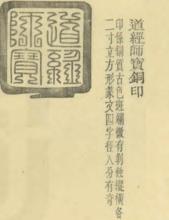 道經師寶銅印
印係銅質古色斑斕微有剝蝕縱橫各
二寸立方形篆文四字徑八分有奇
道經師寶